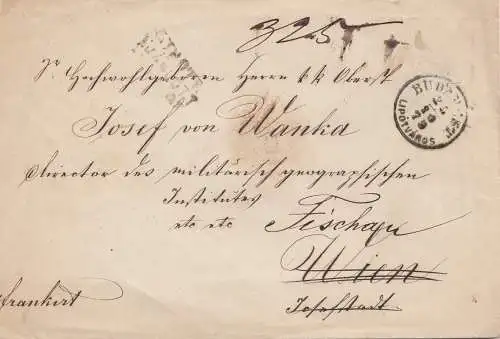 325
Sr Hochwohlgeboren Herrn k k Oberst
Josef von Wanka
Director des militärisch-geographischen
Institutes
etc etc
Fischau
Wien
Josefstadt
frankirt
BUDAPEST
LIPOTVAROS